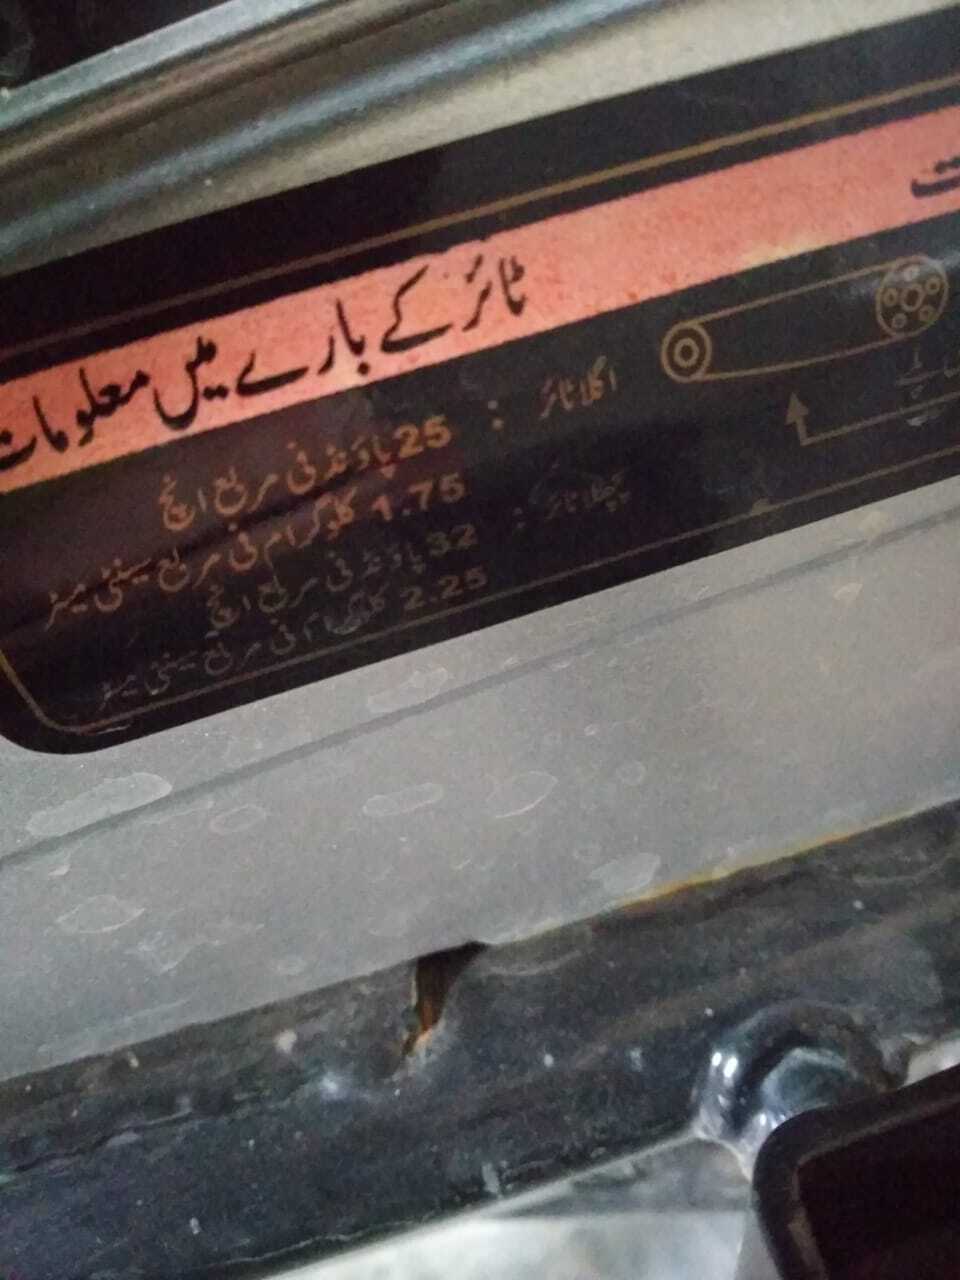 ٹائر کے بارے میں معلومات
اگلا ٹائر : 25 پاؤنڈ فی مربع انچ
1.75 کلوگرام فی مربع سینٹی میٹر
پچھلا ٹائر : 32 پاؤنڈ فی مربع انچ
2.25 کلوگرام فی مربع سینٹی میٹر